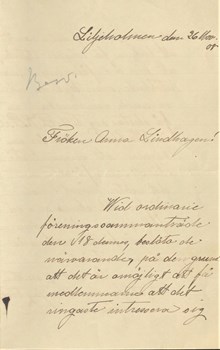 Liljeholmen den 26 Nov.
08.
Besv.
Fröken Anna Lindhagen!
Wid ordinarie
föreningssammanträde
den 18 dennes beslöto de
närvarande, på den grund
att det är omöjligt att få
medlemmarna att det
ringaste intressera sig